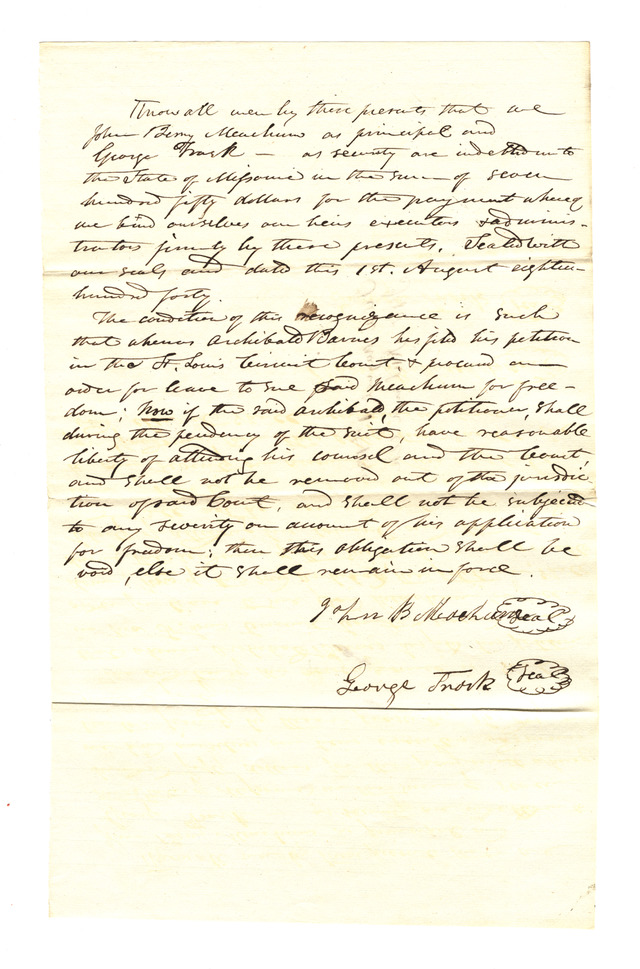 Know all men by these presents that we
John Berry Meachum as principal and
George Trask — as security are indebted unto
the State of Missouri in the sum of seven
hundred fifty dollars for the payment whereof
we bind ourselves our heirs executors & adminis-
trators firmly by these presents. Sealed with
our seals and dated this 1st. August eighteen
hundred forty.
The condition of this recognizance is such
that whereas Archibald Barnes has filed his petition
in the St. Louis Circuit Court, & procured an
order for leave to sue said Meachum for free-
dom; Now if the said Archibald, the petitioner, shall
during the pendency of the suit, have reasonable
liberty of attending his counsel and the Court
and shall not be removed out of the jurisdic-
tion of said Court, and shall not be subjected
to any severity on account of his application
for freedom; then this obligation shall be
void, else it shall remain in force.
John B Meachum Seal
George Trask Seal